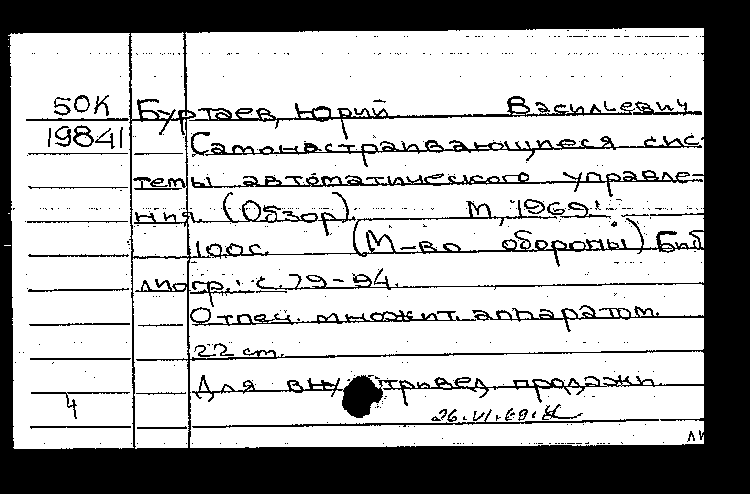 50К Буртаев, Юрий Васильевич
19841 Самонастраивающиеся сис-
темы автоматического управле-
ния. (Обзор). М., 1969.
100с. (М-во обороны) Биб
лиогр.: с. 79-94.
Отпеч. множит. аппаратом.
22 ст.
Для вну тривед. продажи.
4 26.VI.69.